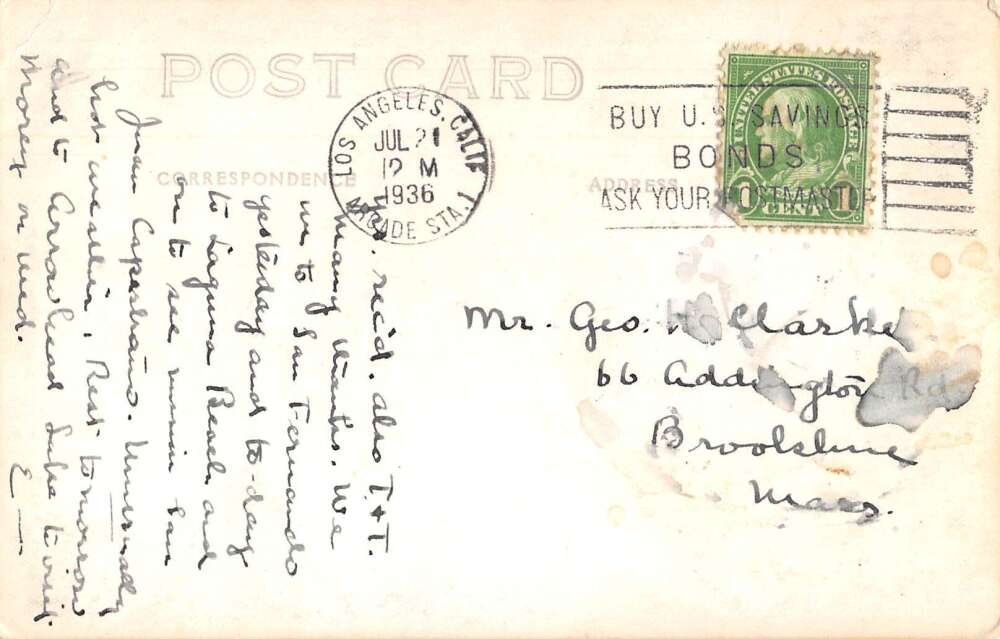 POST CARD
CORRESPONDENCE
ADDRESS
LOS ANGELES, CALIF.
ARCADE STA. 1
JUL 21
12 M
1936
BUY U.S. SAVINGS
BONDS
ASK YOUR POSTMASTER
UNITED STATES POSTAGE
1 CENT 1
Mr. Geo. H. Clarke
66 Addington Rd
Brookline
Mass.
rec'd. also T+T.
many thanks. We
we to San Fernando
yesterday and to-day
to Laguna Beach and
on to see mission San
Juan Capestrano. Unusually
hot weather. Rest tomorrow
and to Arrowhead Lake to visit
Moorey on wed.
E